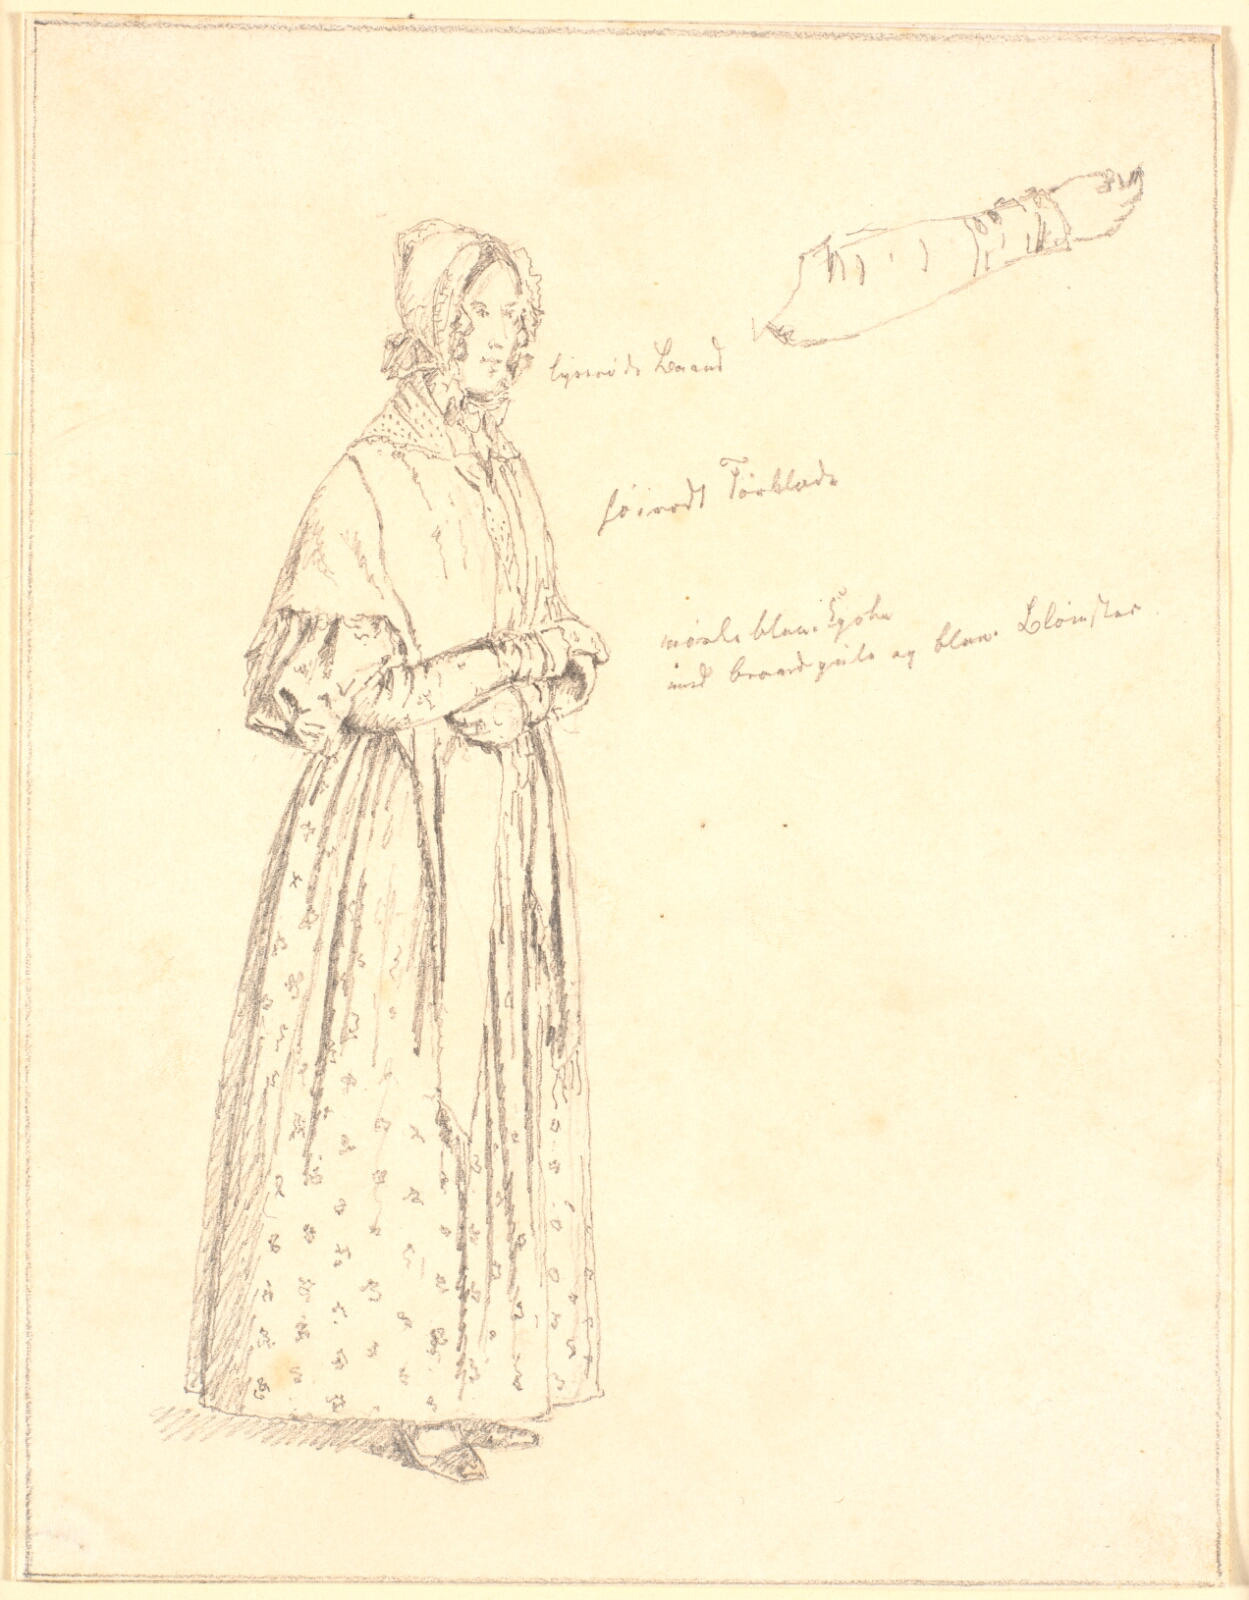 lyserøde Baand
høirødt Tørklæde
mørkeblau Kjole
med brandgule og blau Blomster